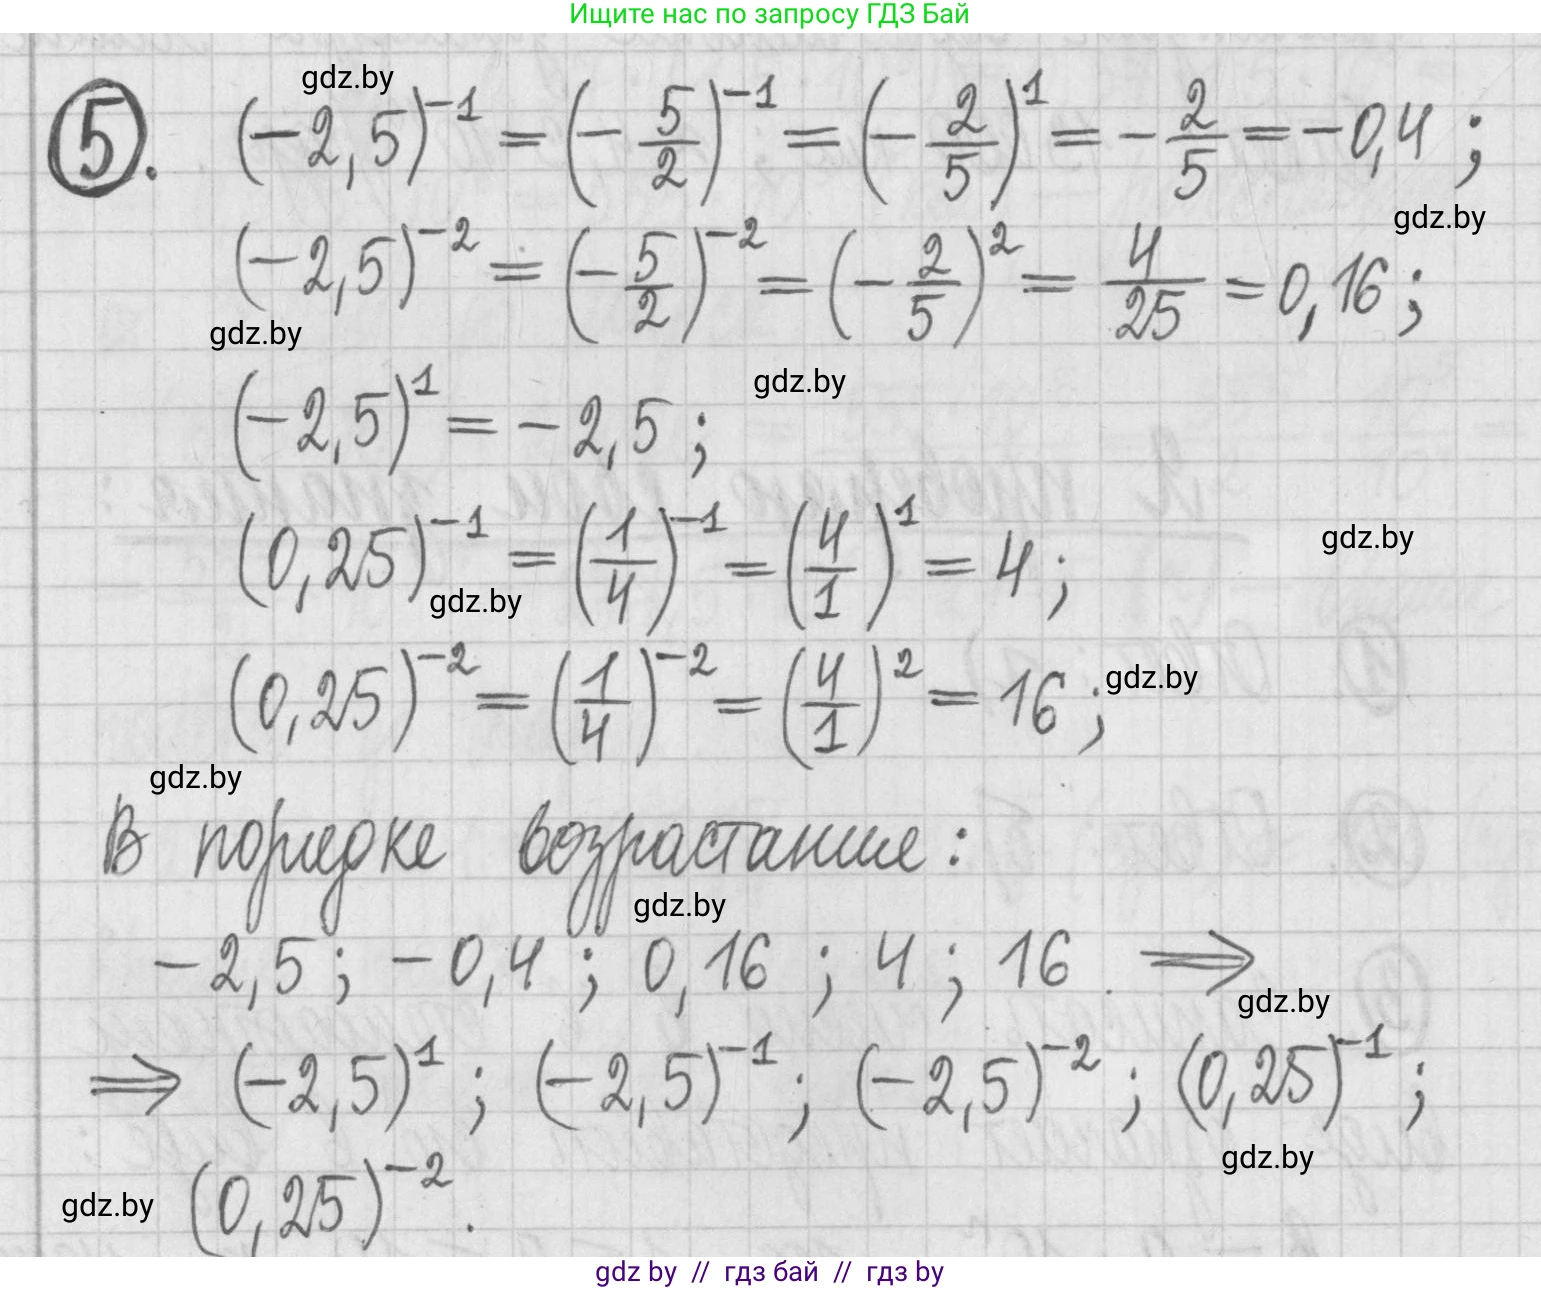 Ищите нас по запросу ГДЗ Бай
gdz.by
5. (-2,5)^{-1} = (-\frac{5}{2})^{-1} = (-\frac{2}{5})^{1} = -\frac{2}{5} = -0,4 ;
gdz.by
(-2,5)^{-2} = (-\frac{5}{2})^{-2} = (-\frac{2}{5})^{2} = \frac{4}{25} = 0,16 ;
gdz.by
gdz.by
(-2,5)^{1} = -2,5 ;
gdz.by
(0,25)^{-1} = (\frac{1}{4})^{-1} = (\frac{4}{1})^{1} = 4 ;
gdz.by
(0,25)^{-2} = (\frac{1}{4})^{-2} = (\frac{4}{1})^{2} = 16 ;
gdz.by
gdz.by
В порядке возрастание:
gdz.by
-2,5 ; -0,4 ; 0,16 ; 4 ; 16 . ⇒
gdz.by
⇒ (-2,5)^{1} ; (-2,5)^{-1} ; (-2,5)^{-2} ; (0,25)^{-1} ;
gdz.by
gdz.by
(0,25)^{-2} .
gdz by // гдз бай // гдз by